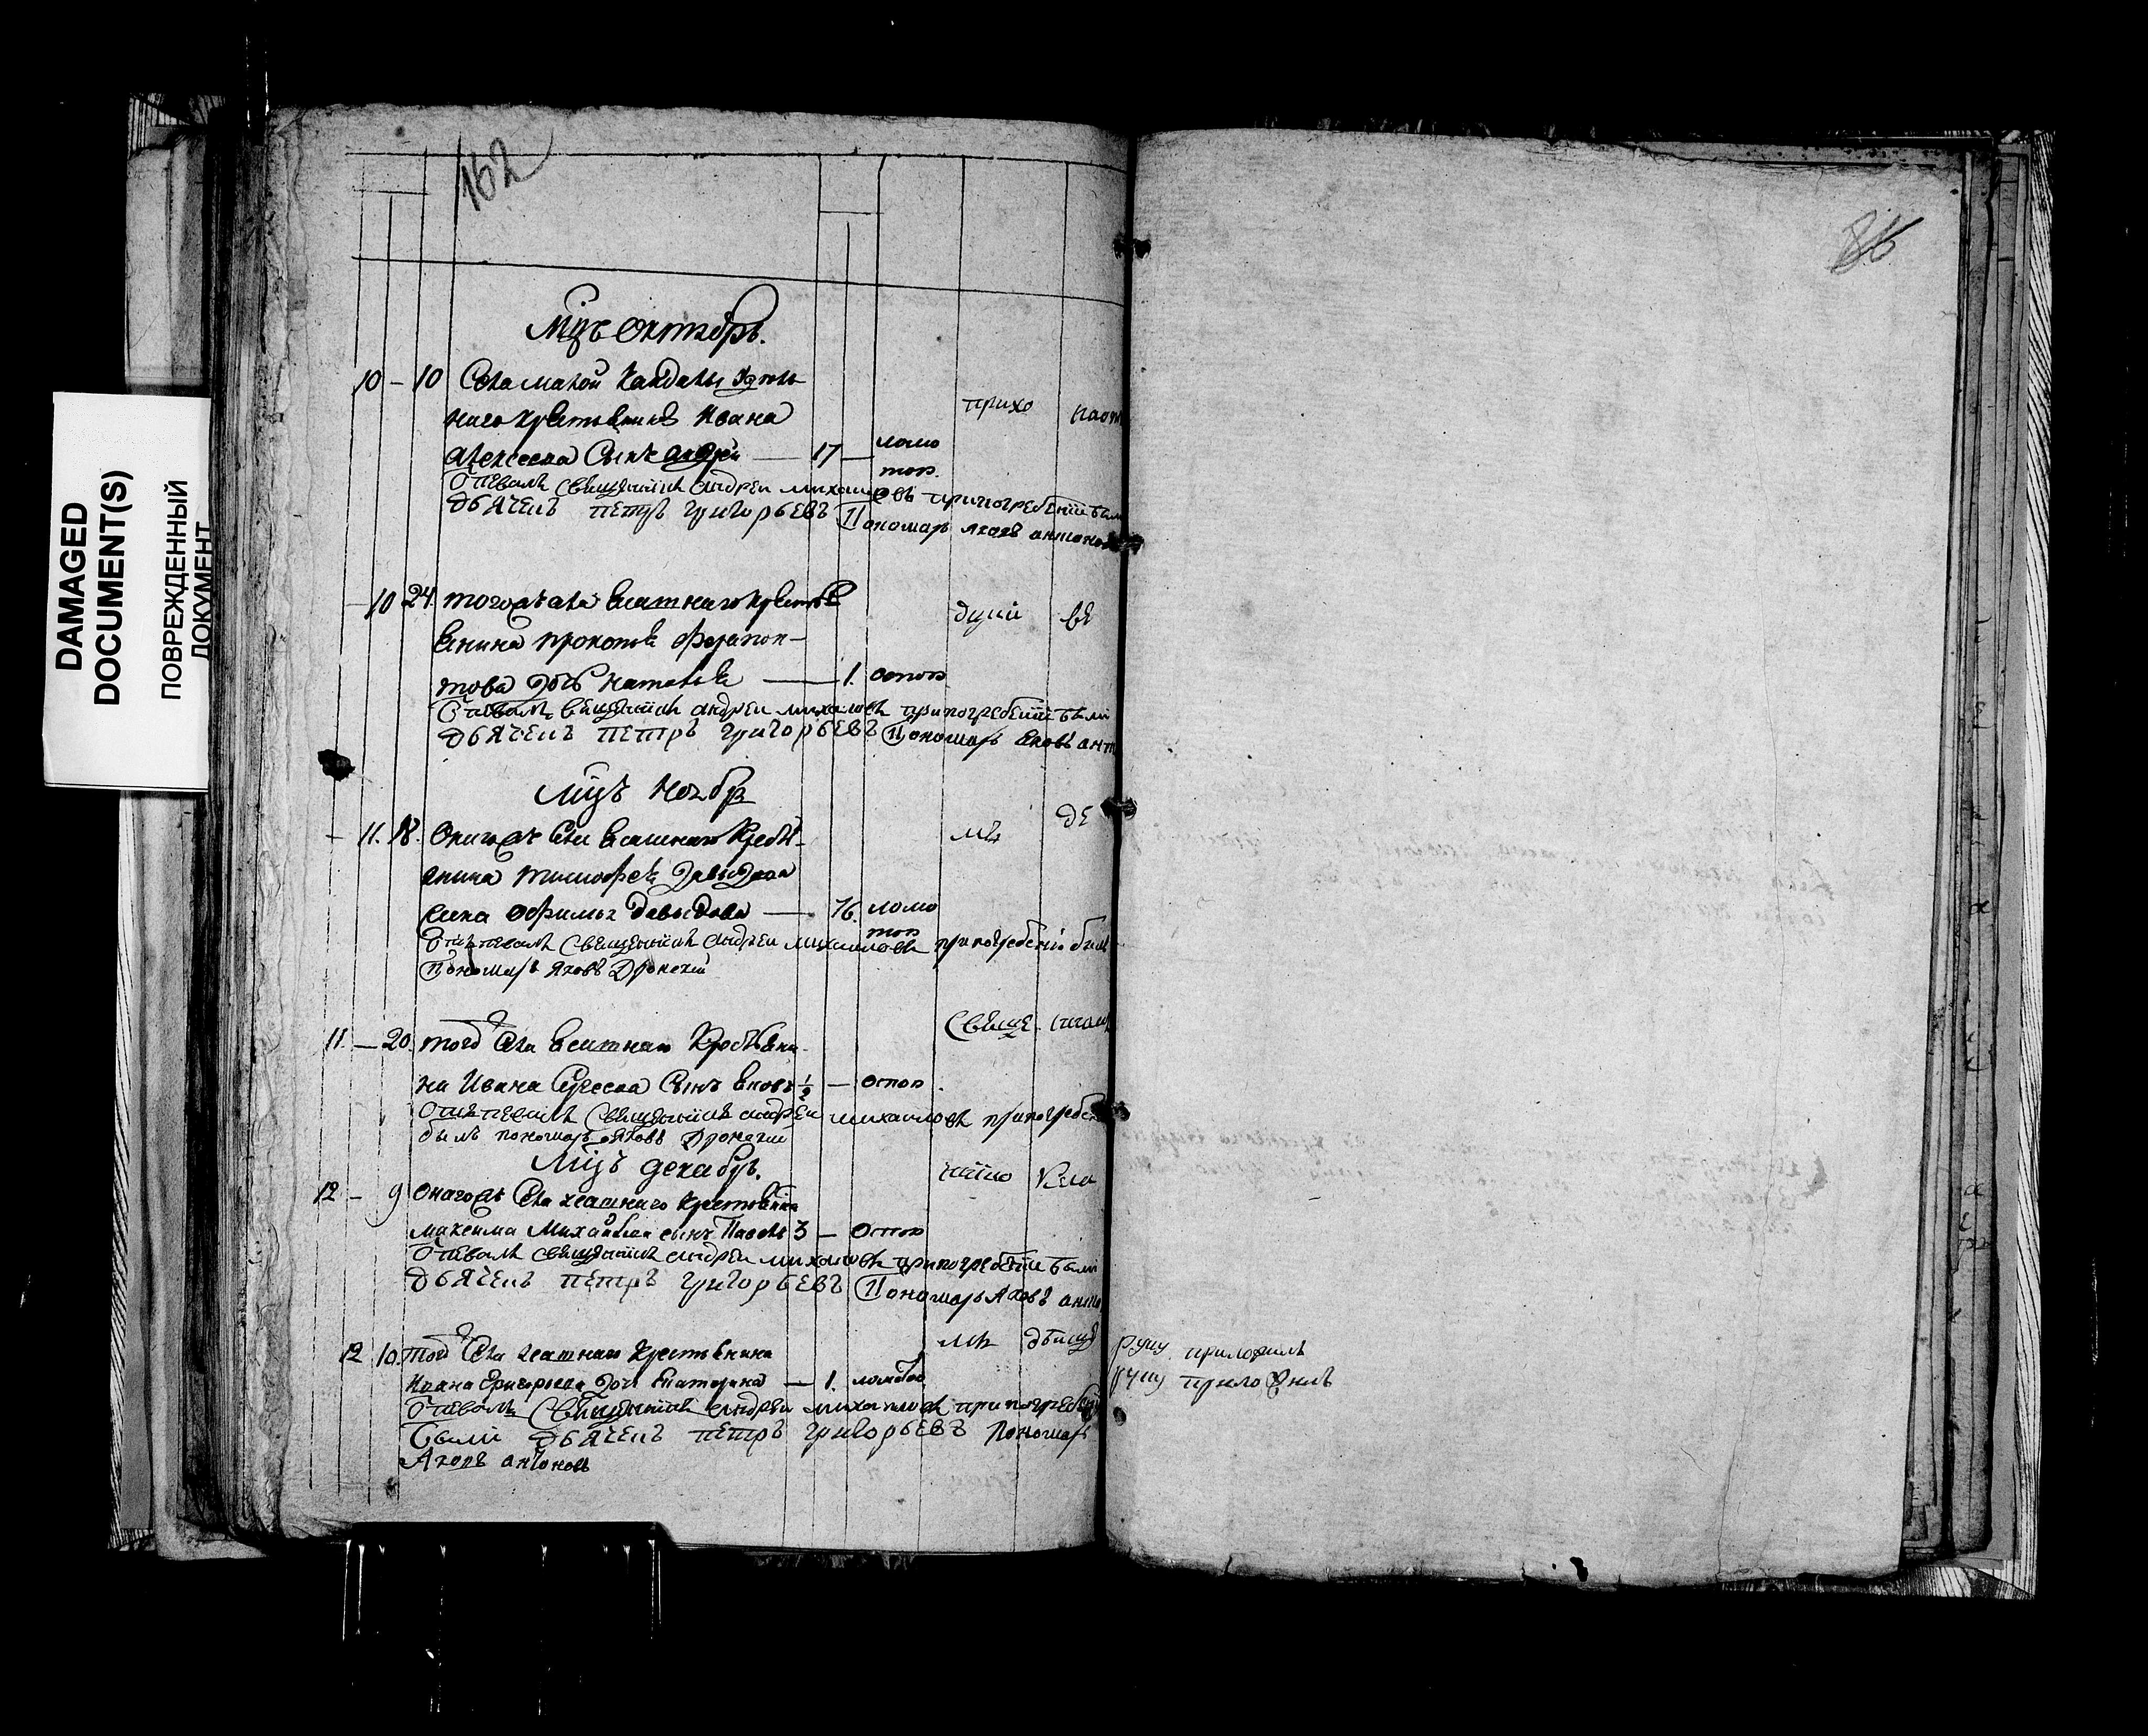 DAMAGED
DOCUMENT(S)
ПОВРЕЖДЕННЫЙ
ДОКУМЕНТ
162
86
Мцъ октябрь.
10 – 10 Села малой Кандалы
наго крестьянина Ивана
алексеева Сынъ андрей — 17 — ломо
тою.
прихо
отпевалъ священникъ андреи михаиловъ припогребенiи были
дьячекъ петръ григорьевъ Пономарь яковъ антоновъ
10 24. тогожъ села ясашнаго крестья
янина прокопья Ферапон–
това дочь наталья — 1. оспою
дский ве
отпевалъ священникъ андреи михаиловъ припогребенiи были
дьячекъ петръ григорьевъ Пономарь яковъ ант
Мцъ ноябрь
11. 18. Оногожъ села ясашнаго кресть–
янина тимофея давыдова
сына давыдова — 76. ломо
тою
де
отпевалъ священникъ андреи михаиловъ припогребенiи былъ
Пономарь яковъ
11. – 20. того села ясашнаго крестьяни–
на Ивана Сергеева Сынъ яковъ 1/2 – оспою.
Свяще
отпевалъ священникъ андреи михаиловъ припогребе
былъ пономарь яковъ
Мцъ декабрь.
12 – 9 онагожъ села ясашнаго крестьянина
максима Михайлова сынъ Павелъ 3 – оспою
отпевалъ священникъ андреи михаиловъ припогребенiи были
дьячекъ петръ григорьевъ Пономарь яковъ анто
12 10. того села ясашнаго крестьянина
Ивана Григорьева дочь Екатерина — 1.
руку приложилъ
руку приложилъ
отпевалъ священникъ андреи михаиловъ припогребенiи
были дьячекъ петръ григорьевъ Пономарь
яковъ антоновъ